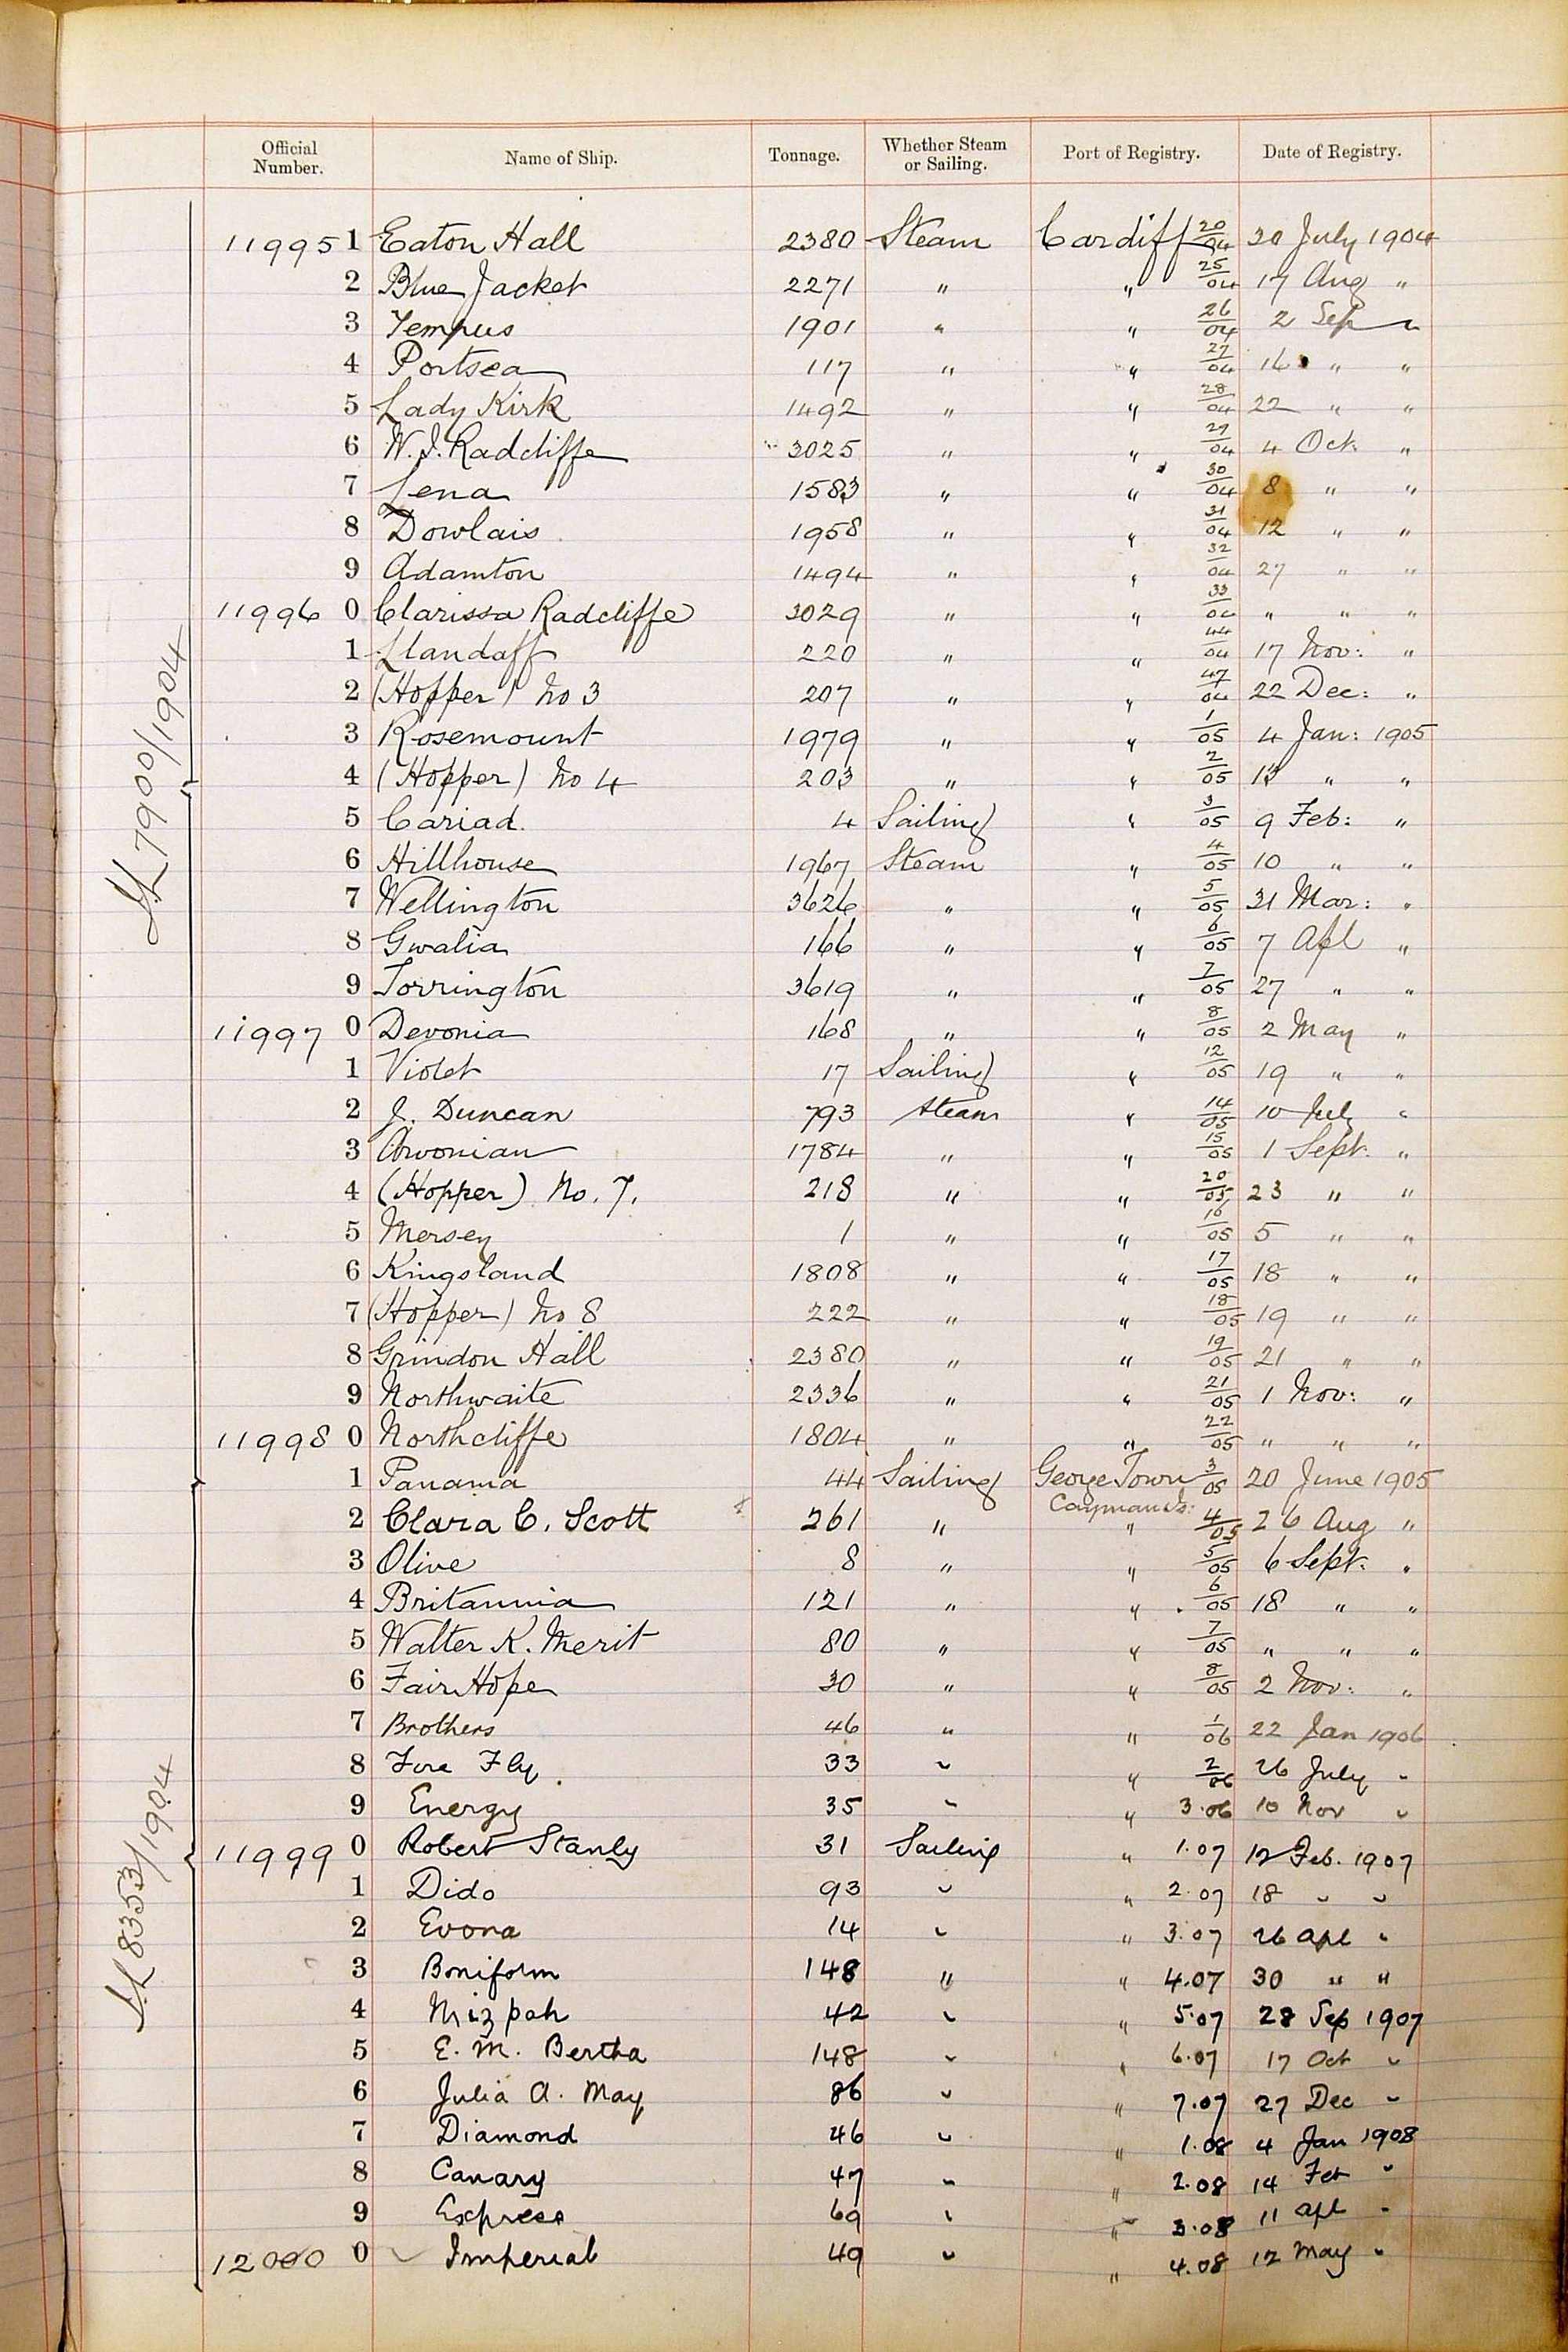 Official Number. Name of Ship. Tonnage. Whether Steam or Sailing. Port of Registry. Date of Registry.
11995 1 Eaton Hall 2380 Steam Cardiff 20/04 20 July 1904
2 Blue Jacket 2271 " " 25/04 17 Aug "
3 Tempus 1901 " " 26/04 2 Sep "
4 Portsea 117 " " 27/04 16 " "
5 Lady Kirk 1492 " " 28/04 22 " "
6 W.I. Radcliffe 3025 " " 29/04 4 Oct: "
7 Lena 1583 " " 30/04 8 " "
8 Dowlais 1958 " " 31/04 12 " "
9 Adamton 1494 " " 32/04 27 " "
11996 0 Clarissa Radcliffe 3029 " " 33/04 " " "
1 Llandaff 220 " " 44/04 17 Nov: "
2 (Hopper) No 3 207 " " 47/04 22 Dec: "
3 Rosemount 1979 " " 1/05 4 Jan: 1905
4 (Hopper) No 4 203 " " 2/05 13 " "
5 Cariad. 4 Sailing " 3/05 9 Feb: "
6 Hillhouse 1967 Steam " 4/05 10 " "
7 Wellington 3626 " " 5/05 31 Mar: "
8 Gwalia 166 " " 6/05 7 Apl "
9 Torrington 3619 " " 7/05 27 " "
11997 0 Devonia 168 " " 8/05 2 May "
1 Violet 17 Sailing " 12/05 19 " "
2 J. Duncan 793 Steam " 14/05 10 July "
3 Arvonian 1784 " " 15/05 1 Sept. "
4 (Hopper) No. 7. 218 " " 20/05 23 " "
5 Mersey 1 " " 16/05 5 " "
6 Kingsland 1808 " " 17/05 18 " "
7 (Hopper) No 8 222 " " 18/05 19 " "
8 Grindon Hall 2380 " " 19/05 21 " "
9 Northwaite 2336 " " 21/05 1 Nov: "
11998 0 Northcliffe 1804 " " 22/05 " " "
1 Panama 44 Sailing George Town 3/05 20 June 1905
Cayman Is:
2 Clara C. Scott 261 " " 4/05 26 Aug "
3 Olive 8 " " 5/05 6 Sept. "
4 Britannia 121 " " 6/05 18 " "
5 Walter K. Merit 80 " " 7/05 " " "
6 Fair Hope 30 " " 8/05 2 Nov: "
7 Brothers 46 " " 1/06 22 Jan 1906
8 Fire Fly. 33 " " 2/06 26 July "
9 Energy 35 " " 3.06 10 Nov "
11999 0 Robert Stanly 31 Sailing " 1.07 12 Feb. 1907
1 Dido 93 " " 2.07 18 " "
2 Evona 14 " " 3.07 26 Apl "
3 Boniform 148 " " 4.07 30 " "
4 Mizpah 42 " " 5.07 28 Sep 1907
5 E. M. Bertha 148 " " 6.07 17 Oct "
6 Julia A. May 86 " " 7.07 27 Dec "
7 Diamond 46 " " 1.08 4 Jan 1908
8 Canary 47 " " 2.08 14 Feb "
9 Express 69 " " 3.08 11 Apl "
12000 0 Imperial 49 " " 4.08 12 May "
7900/1904
8353/1904